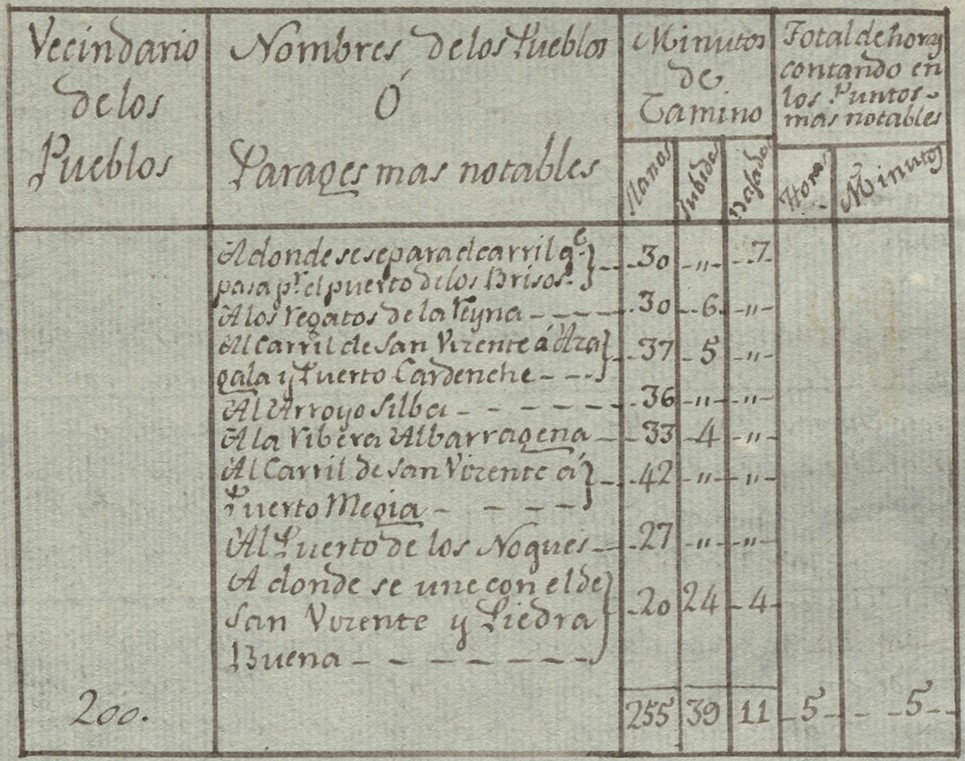 Vecindario
de los
Pueblos
Nombres de los Pueblos
Ó
Parages mas notables
Minutos
de
Camino
Llanos Subidas Bajada
Total de horas
contando en
los Puntos
mas notables
Horas Minutos
A donde se separa el carril qe. 30 " 7
pasa pr. el puerto de los Brisos.
A los Regatos de la Reyna 30 6 "
Al Carril de San Vizente á Aza 37 5 "
gala y Puerto Cardenche
Al Arroyo Silba 36 " "
A la Ribera Albarragena 33 4 "
Al Carril de San Vizente á 42 " "
Puerto Megia
Al Puerto de los Nogues 27 " "
A donde se une con el de 20 24 4
San Vizente y Piedra
Buena
200. 255 39 11 5 5